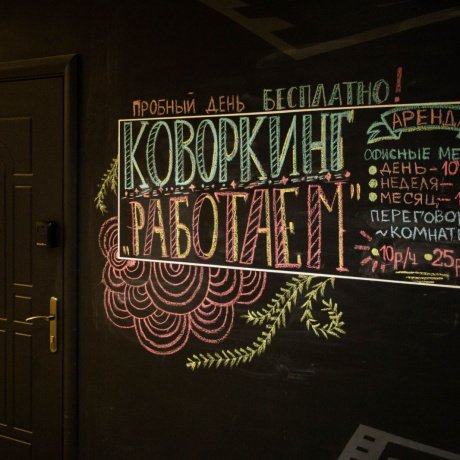 ПРОБНЫЙ ДЕНЬ БЕСПЛАТНО!
КОВОРКИНГ
„РАБОТАЕМ"
АРЕНДА
ОФИСНЫЕ МЕ
ДЕНЬ - 10
НЕДЕЛЯ -
МЕСЯЦ - 1
ПЕРЕГОВОР
~КОМНАТ
10р/ч • 25р